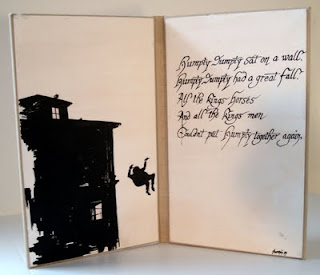 Humpty Dumpty sat on a wall.
Humpty Dumpty had a great fall.
All the Kings horses
And all the Kings men
Couldn't put Humpty together again.